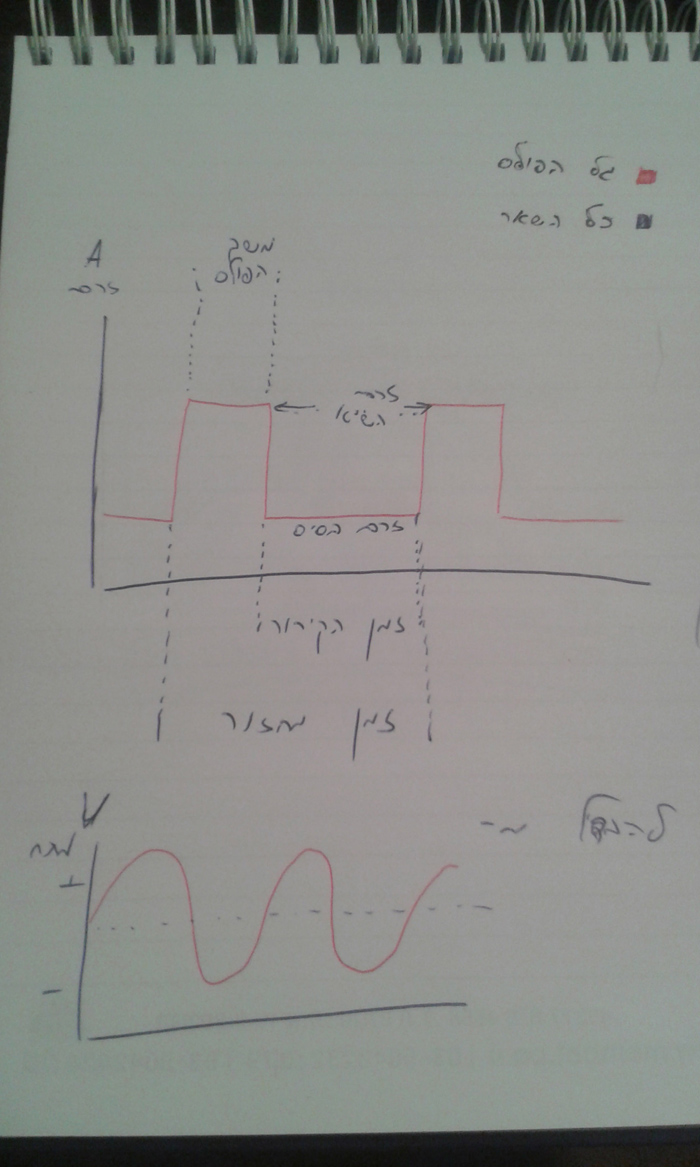 גל הפולס
כל השאר
משך
הפולס
A
זרם
זרם
השיא
זרם בסיס
זמן הקירור
זמן מחזור
V
מתח
+
-
להבדיל מ-